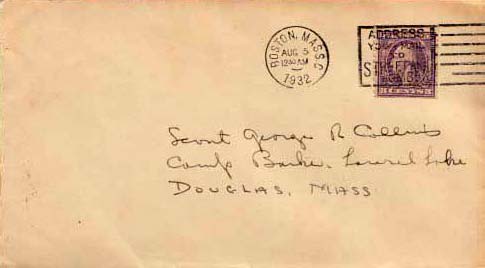 BOSTON, MASS.
AUG 5
12 30 AM
1932
ADDRESS
YOUR MAIL
TO
STREET AND
Scout George R Collins
Camp Barker, Laurel Lake
DOUGLAS, MASS